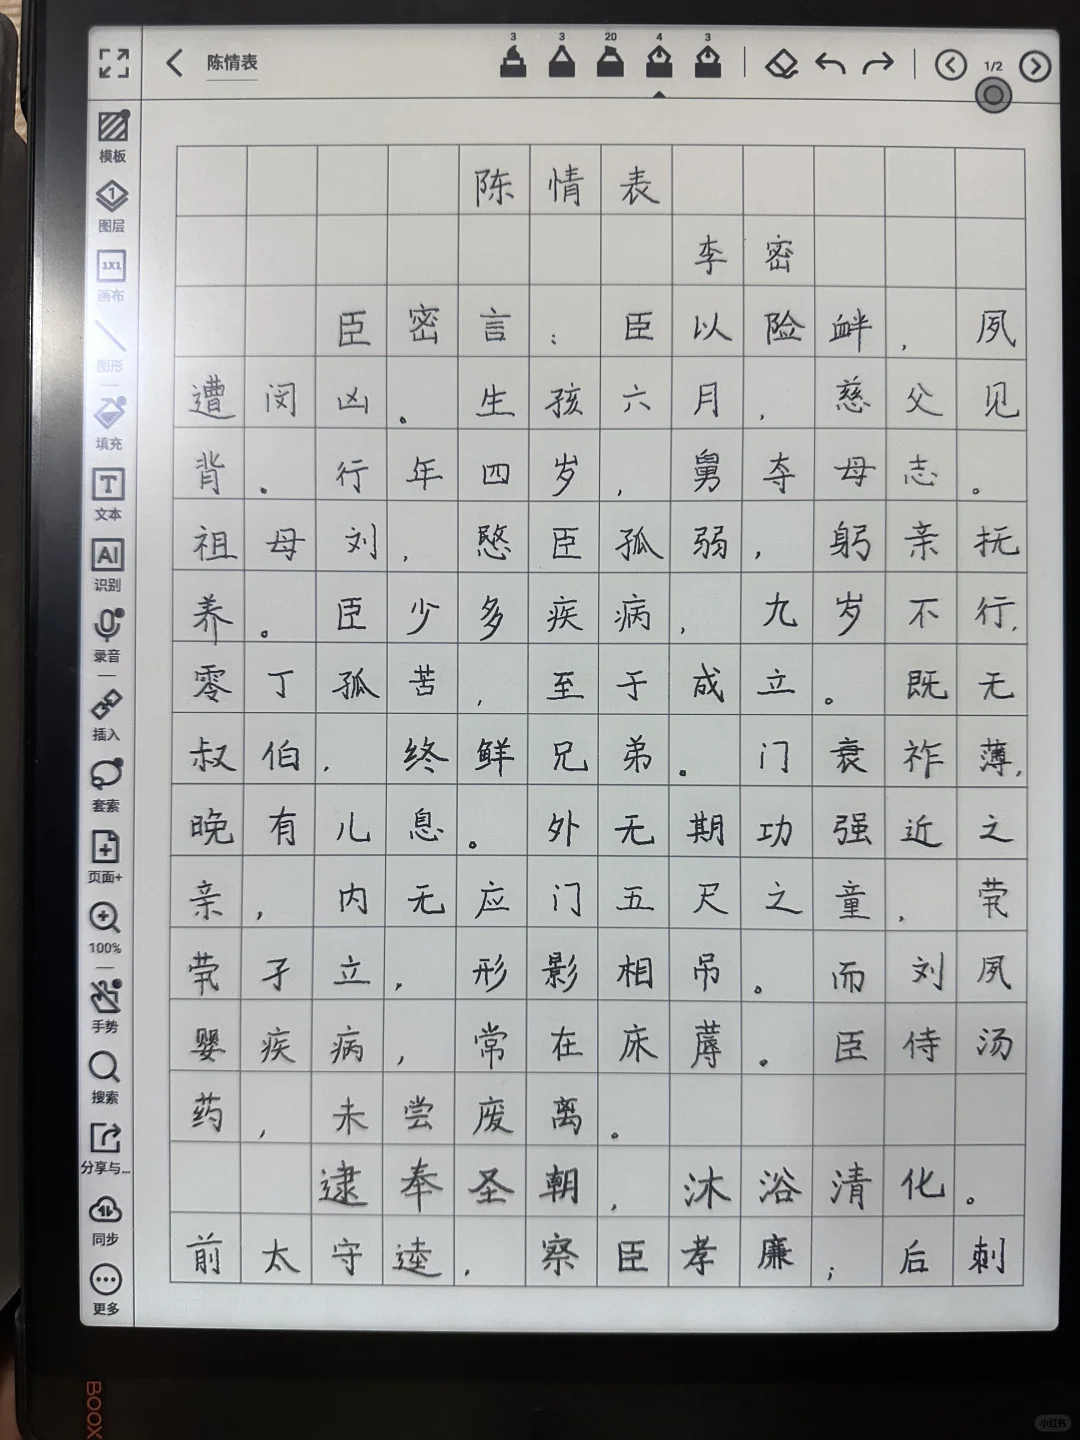 陈情表
3 3 20 4 3
1/2
模板
1
图层
1X1
画布
图形
填充
T
文本
AI
识别
录音
插入
套索
页面+
100%
手势
搜索
分享与...
同步
更多
陈情表
李密
臣密言：臣以险衅，夙
遭闵凶。生孩六月，慈父见
背。行年四岁，舅夺母志。
祖母刘，愍臣孤弱，躬亲抚
养。臣少多疾病，九岁不行，
零丁孤苦，至于成立。既无
叔伯，终鲜兄弟。门衰祚薄，
晚有儿息。外无期功强近之
亲，内无应门五尺之童，茕
茕孑立，形影相吊。而刘夙
婴疾病，常在床蓐。臣侍汤
药，未尝废离。
逮奉圣朝，沐浴清化。
前太守逵，察臣孝廉；后刺
BOOX
小红书